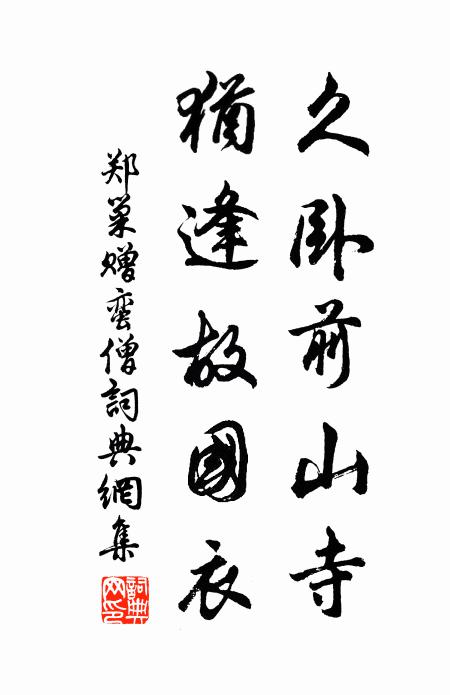 久卧前山寺
猶逢故國衣
郑巢赠蛮僧詞典網集
詞典网印